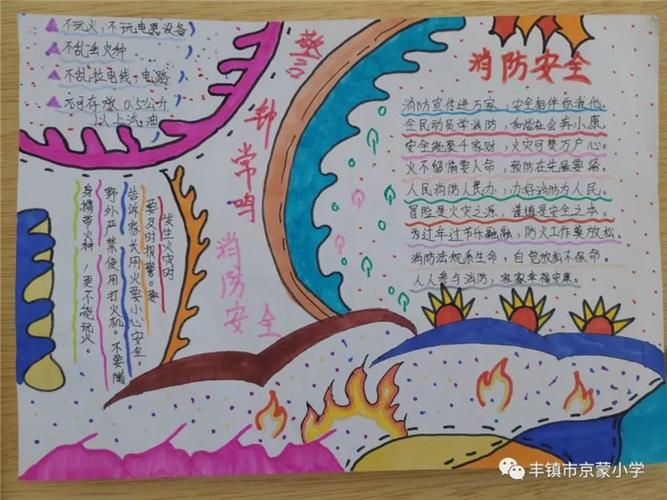 不玩火，不玩电器设备
不乱丢火种
不乱拉电线、电路
不可存放0.5公斤
以上汽油
警钟常鸣
消防安全
发生火灾时
要及时报警。要
告诉家长用火要小心安全。
野外严禁使用打火机。不要随
身携带火种，更不能玩火。
消防安全
消防宣传进万家，安全相伴你我他
全民动员学消防，和谐社会奔小康
安全能聚千家财，火灾可焚万户心。
火不留情要人命，预防在先最要紧
人民消防人民办，办好消防为人民。
冒险是火灾之源，谨慎是安全之本。
为过年过节乐融融，防火工作莫放松
消防法规系生命，自觉
人人参与消防，家家幸福安康。
丰镇市京蒙小学